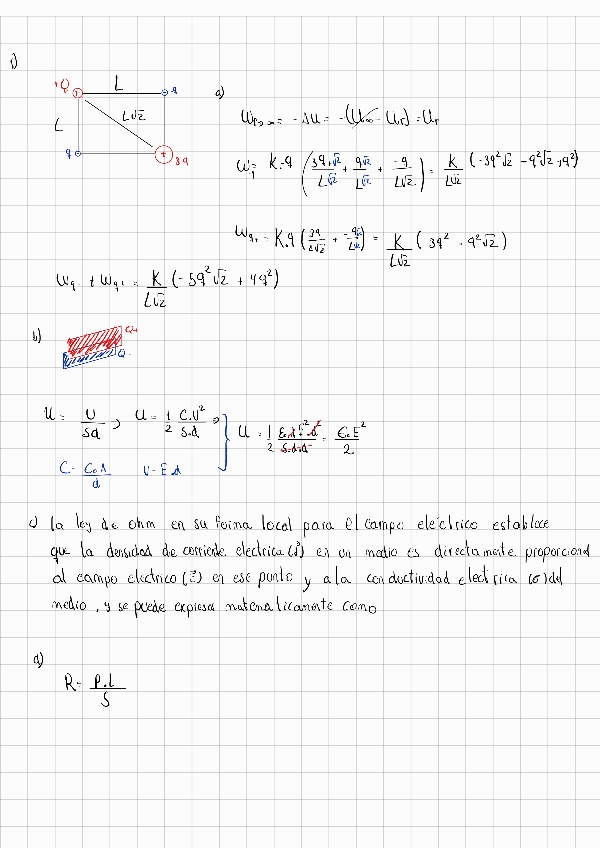 1)
L
L
L√2
q
3q
a)
W_{P→∞} = -ΔU = -(U∞ - U_P) = U_P
K.q
= K/L√2 (-3q²√2 - q²√2 + q²)
= K.q (3q/L√2 + -q√2/L√2) = K/L√2 (3q² - q²√2)
= K/L√2 (-5q²√2 + 4q²)
b)
Q
U = U/Sd, U = 1/2 C.V²/S.d
U = 1/2 = ε₀E²/2
d V = E.d
c) la ley de ohm en su forma local para el campo eléctrico establece
que la densidad de corriente electrica (J) en un medio es directamente proporcional
al campo electrico (E) en ese punto y a la conductividad electrica (σ) del
medio, y se puede expresar matematicamente como
d)
R = P.L/S